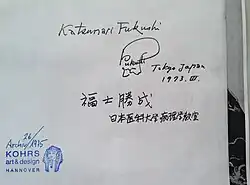 Katsunari Fukushi
Fukushi
Tokyo Japan
1973. III.
福士勝成
日本医科大学病理学教室
26
Archiv/1975
KOHRS
art & design
HANNOVER